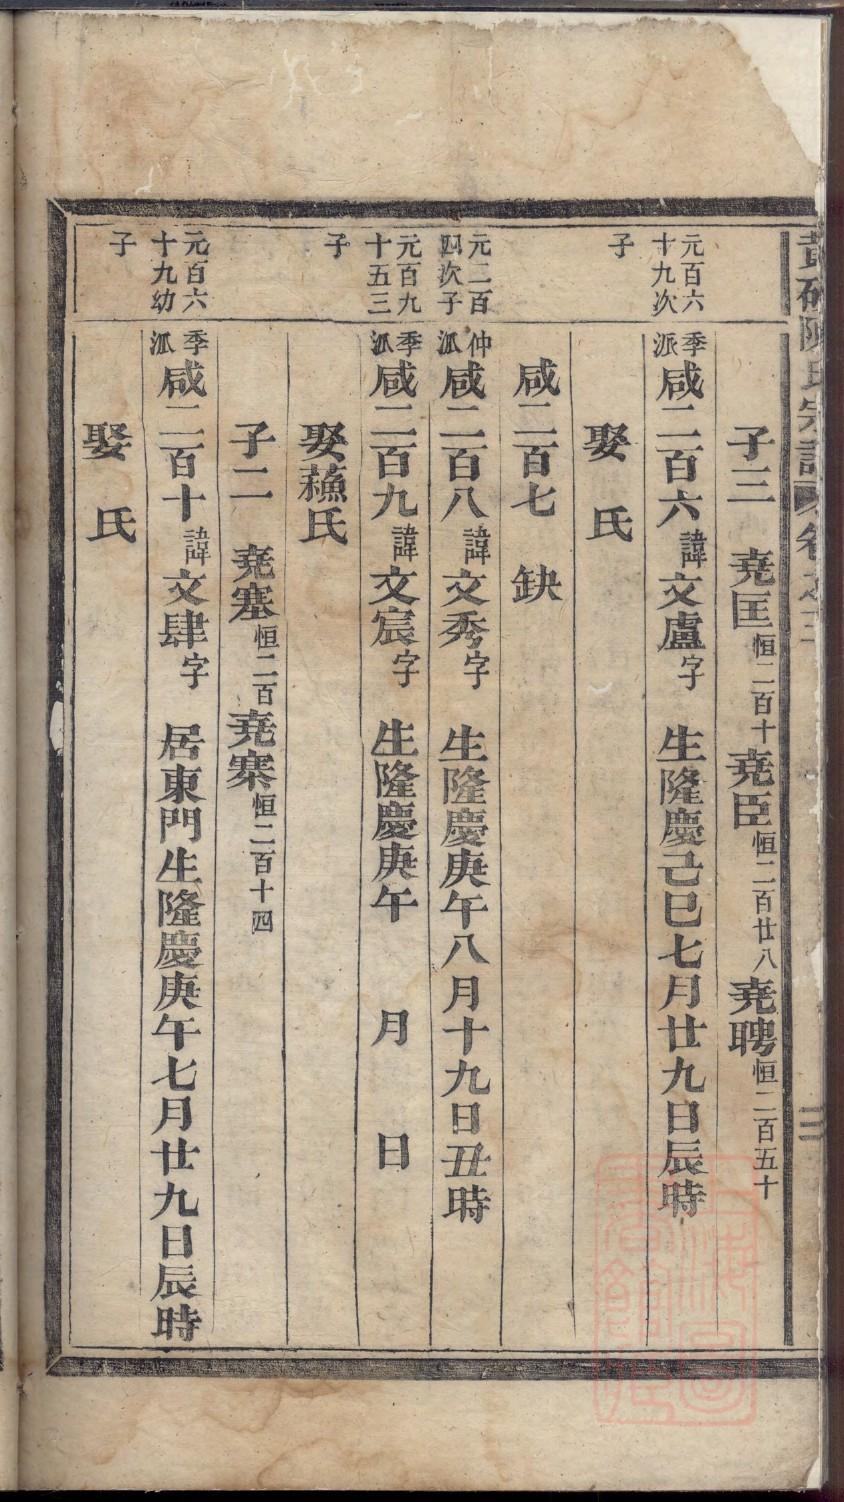 子三 堯匡恒二百十堯臣恒二百廿八堯聘恒二百五十
元百六十九次子
季派咸二百六諱文盧字 生隆慶己巳七月廿九日辰時
娶 氏
咸二百七 缺
元二百四次子
仲派咸二百八諱文秀字 生隆慶庚午八月十九日丑時
元百九十五三子
季派咸二百九諱文宸字 生隆慶庚午 月 日
娶蘓氏
子二 堯塞恒二百堯寨恒二百十四
元百六十九幼子
季派咸二百十諱文肆字 居東門生隆慶庚午七月廿九日辰時
娶 氏